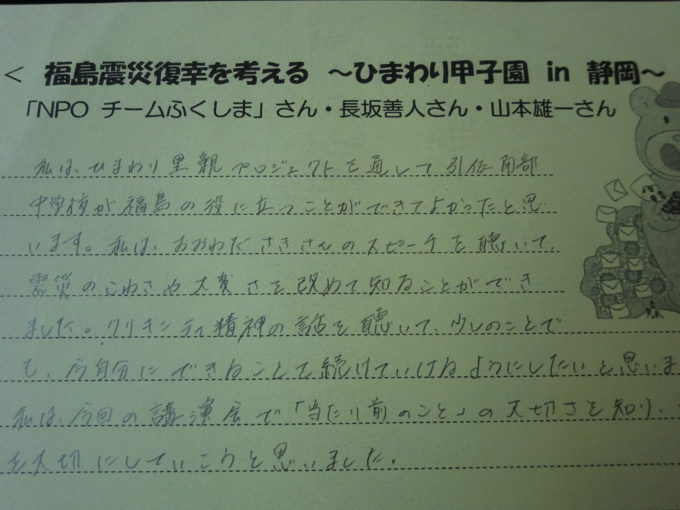 < 福島震災復幸を考える ～ひまわり甲子園 in 静岡～
「NPO チームふくしま」さん・長坂善人さん・山本雄一さん
私は、ひまわり里親プロジェクトを通して引佐南部
中学校が福島の役に立つことができてよかったと思
います。私は、おおわださきさんのスピーチを聴いて、
震災のこわさや大変さを改めて知ることができ
ました。クリキンディ精神の話を聴いて、少しのことで
も、今自分にできることを続けていけるようにしたいと思いま
私は、今回の講演会で「当たり前のこと」の大切さを知り、
を大切にしていこうと思いました。